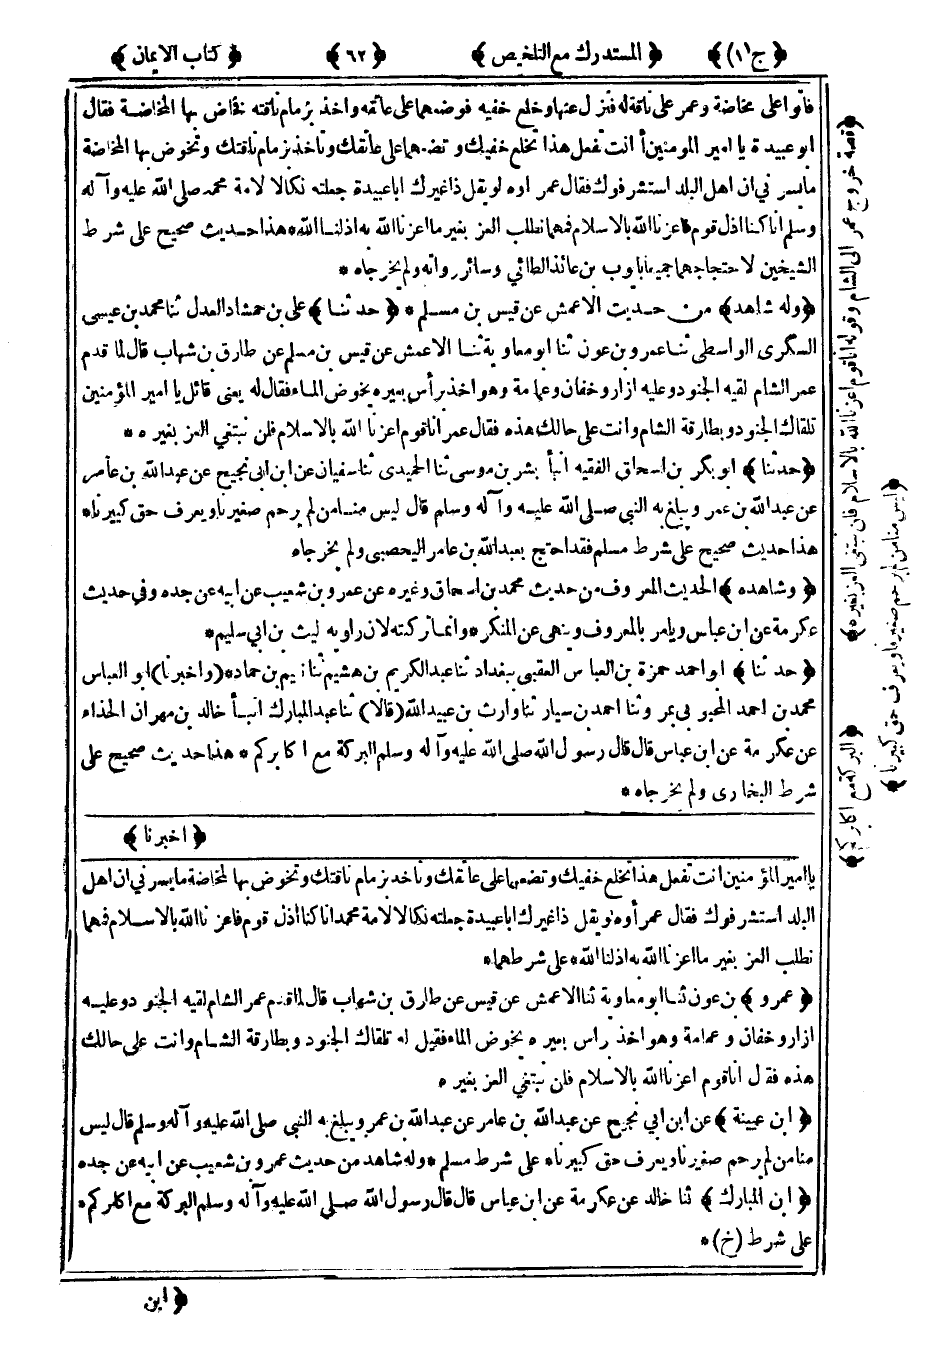 ﴿ج ١﴾ ﴿المستدرك مع التلخيص﴾ ﴿٦٢﴾ ﴿كتاب الايمان﴾
فأتوا على مخاضة وعمر على ناقة له فنزل عنها وخلع خفيه فوضعهما على عاتقه واخذ بزمام ناقته فخاض بها المخاضة فقال
ابو عبيدة يا امير المومنين أ انت تفعل هذا تخلع خفيك وتضعهما على عاتقك وتأخذ بزمام ناقتك وتخوض بها المخاضة
ما يسرني ان اهل البلد استشرفوك فقال عمر اوه لو يقل ذا غيرك ابا عبيدة جعلته نكالا لامة محمد صلى الله عليه وآله
وسلم انا كنا اذل قوم فاعزنا الله بالاسلام فمهما نطلب العز بغير ما اعزنا الله به اذلنا الله * هذا حديث صحيح على شرط
الشيخين لاحتجاجهما جميعا بايوب بن عائذ الطائي وسائر رواته ولم يخرجاه *
﴿وله شاهد﴾ من حديث الاعمش عن قيس بن مسلم * ﴿حدثنا﴾ على بن حمشاد العدل ثنا محمد بن عيسى
السكرى الواسطى ثنا عمرو بن عون ثنا ابو معاوية ثنا الاعمش عن قيس بن مسلم عن طارق بن شهاب قال لما قدم
عمر الشام لقيه الجنود وعليه ازار وخفان وعمامة وهو اخذ برأس بعيره يخوض الماء فقال له يعنى قائل يا امير المؤمنين
تلقاك الجنود وبطارقة الشام وانت على حالك هذه فقال عمر انا قوم اعزنا الله بالاسلام فلن نبتغي العز بغيره *
﴿حدثنا﴾ ابو بكر بن اسحاق الفقيه انبأ بشر بن موسى ثنا الحميدى ثنا سفيان عن ابن ابى نجيح عن عبد الله بن عامر
عن عبد الله بن عمرو يبلغ به النبى صلى الله عليه وآله وسلم قال ليس منا من لم يرحم صغيرنا ويعرف حق كبيرنا *
هذا حديث صحيح على شرط مسلم فقد احتج بعبد الله بن عامر اليحصبى ولم يخرجاه
﴿وشاهده﴾ الحديث المعروف من حديث محمد بن اسحاق وغيره عن عمرو بن شعيب عن ابيه عن جده وفي حديث
عكرمة عن ابن عباس ويامر بالمعروف وينهى عن المنكر * وانما تركته لان راويه ليث بن ابي سليم *
﴿حدثنا﴾ ابو احمد حمزة بن العباس العقبي ببغداد ثنا عبد الكريم بن هشيم ثنا نعيم بن حماد * (واخبرنا) ابو العباس
محمد بن احمد المحبوبى بمرو ثنا احمد بن سيار ثنا وارث بن عبيد الله (قالا) ثنا عبد المبارك انبأ خالد بن مهران الحذاء
عن عكرمة عن ابن عباس قال قال رسول الله صلى الله عليه وآله وسلم البركة مع اكابركم * هذا حديث صحيح على
شرط البخارى ولم يخرجاه *
﴿اخبرنا﴾
يا امير المؤمنين انت تفعل هذا تخلع خفيك وتضعها على عاتقك وتأخذ بزمام ناقتك وتخوض بها المخاضة ما يسرني ان اهل
البلد استشرفوك فقال عمر أوه لو يقل ذا غيرك ابا عبيدة جعلته نكالا لامة محمد انا كنا اذل قوم فاعزنا الله بالاسلام فمهما
نطلب العز بغير ما اعزنا الله به اذلنا الله * على شرطهما *
﴿عمرو﴾ بن عون ثنا ابو معاوية ثنا الاعمش عن قيس عن طارق بن شهاب قال لما قدم عمر الشام لقيه الجنود وعليه
ازار وخفان وعمامة وهو اخذ راس بعيره يخوض الماء فقيل له تلقاك الجنود وبطارقة الشام وانت على حالك
هذه فقال انا قوم اعزنا الله بالاسلام فلن نبتغي العز بغيره
﴿ابن عيينة﴾ عن ابن ابي نجيح عن عبد الله بن عامر عن عبد الله بن عمرو يبلغ به النبى صلى الله عليه وآله وسلم قال ليس
منا من لم يرحم صغيرنا ويعرف حق كبيرنا * على شرط مسلم * وله شاهد من حديث عمرو بن شعيب عن ابيه عن جده
﴿ابن المبارك﴾ ثنا خالد عن عكرمة عن ابن عباس قال قال رسول الله صلى الله عليه وآله وسلم البركة مع اكابركم *
على شرط (خ) *
﴿ابن
﴿قصة خروج عمر الى الشام وقوله انا قوم اعزنا الله بالاسلام فلن نبتغى العز بغيره﴾
﴿ليس منا من لم يرحم صغيرنا ويعرف حق كبيرنا﴾
﴿البركة مع اكابركم﴾